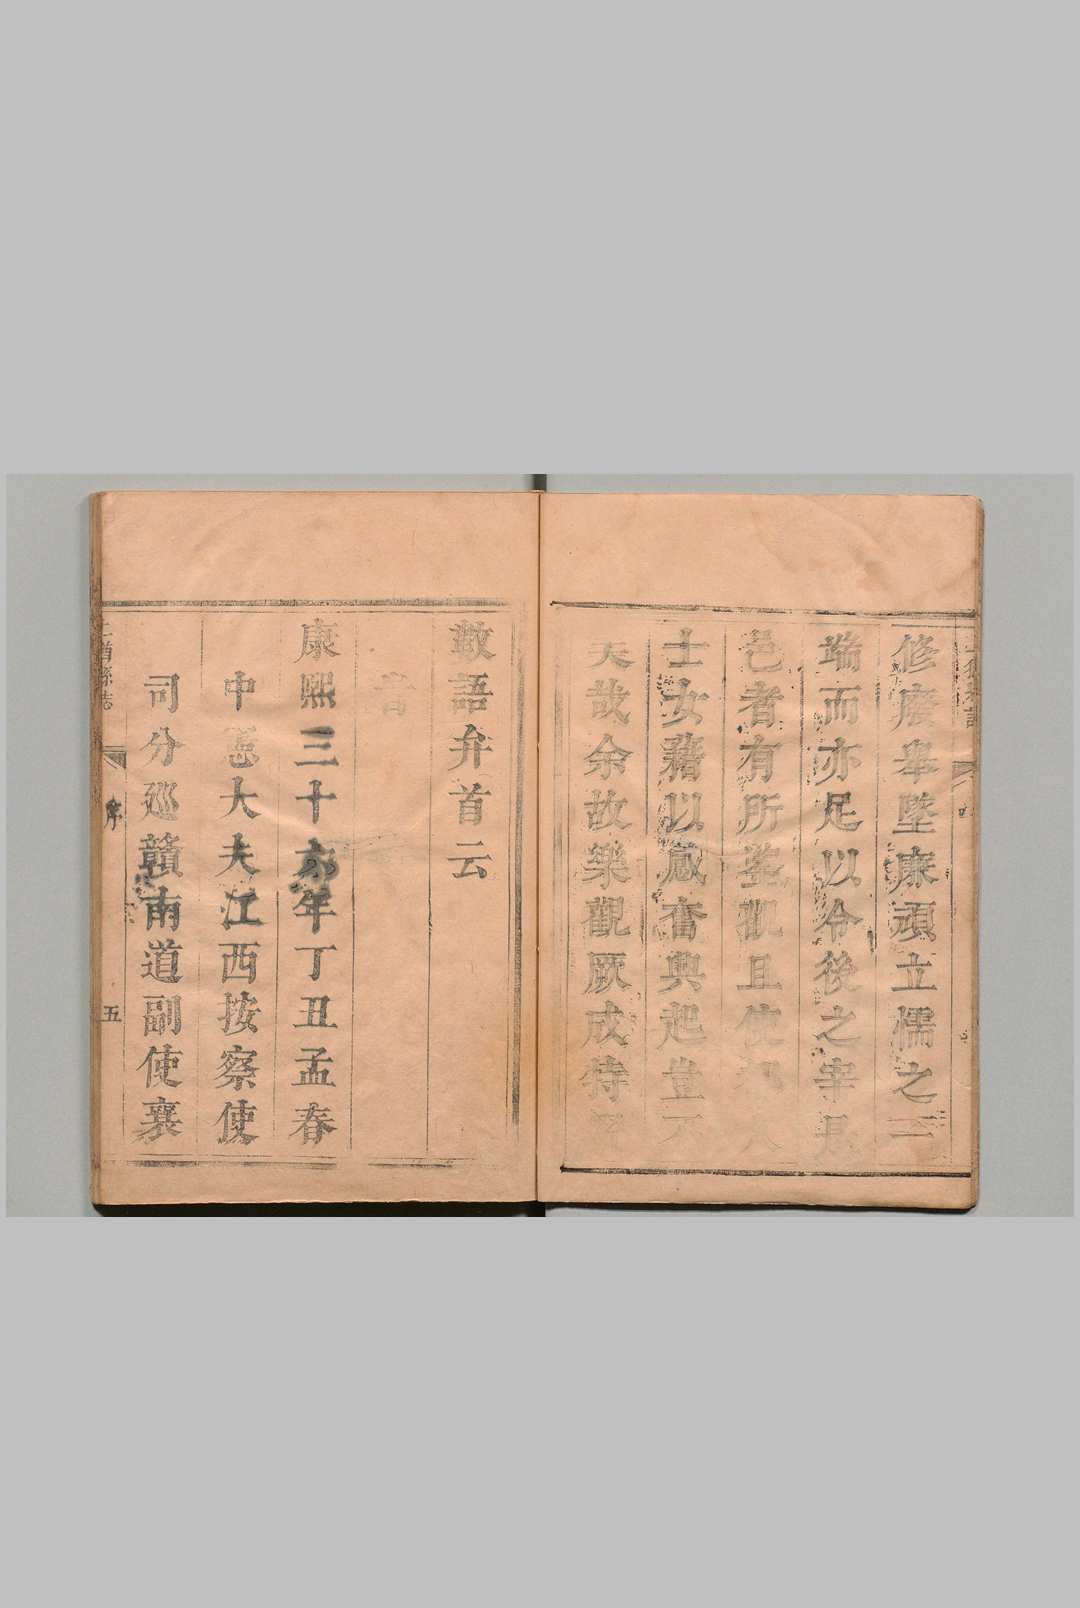 修廢舉墜廉頑立懦之一
端而亦足以令後之宰是
邑者有所鑒觀且使
士女藉以感奮興起豈
天哉余故樂觀厥成特
四
數語弁首云
旹
康熙三十六年丁丑孟春
中憲大夫江西按察使
司分廵贛南道副使襄
上猶縣志
序
五